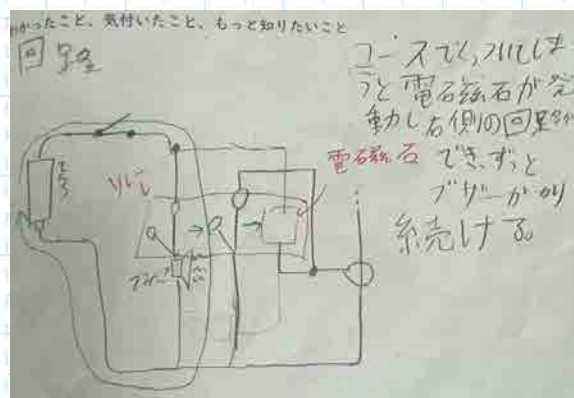 わかったこと、気付いたこと、もっと知りたいこと
回路
コースでくっついてしま
うと電磁石が発
動し右側の回路が
でき、ずっと
ブザーが鳴り
続ける。
電磁石
ブザー